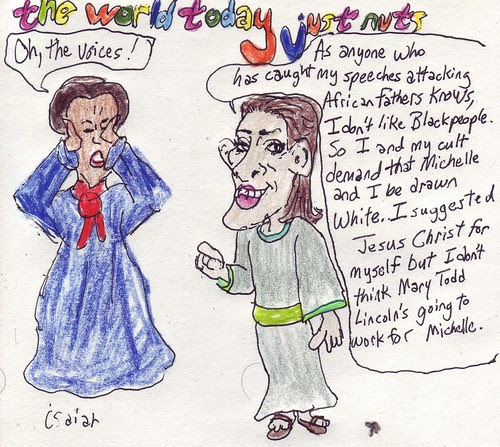 the world today just nuts
Oh, the voices!
As anyone who
has caught my speeches attacking
African fathers knows,
I don't like Black people.
So I and my cult
demand that Michelle
and I be drawn
White. I suggested
Jesus Christ for
myself but I don't
think Mary Todd
Lincoln's going to
work for Michelle.
isaiah